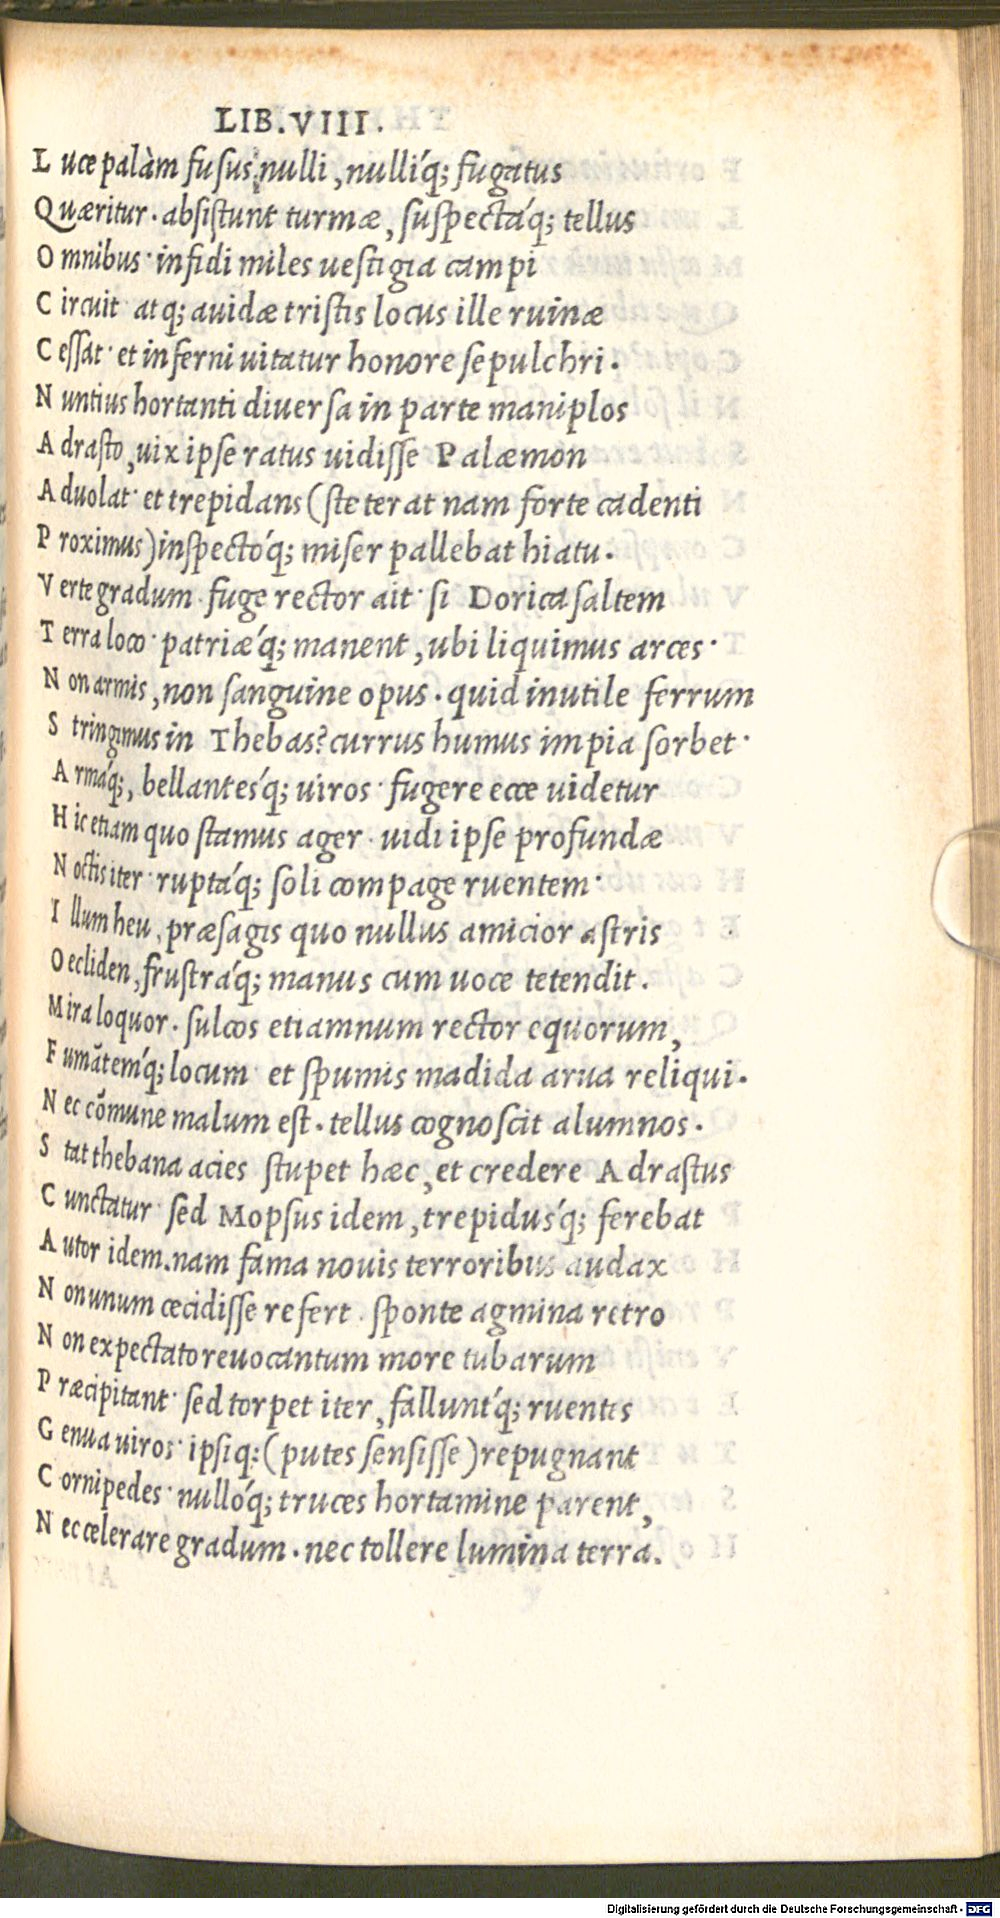 LIB.VIII.
L uce palàm fusus nulli, nulliq́; fugatus
Quæritur. absistunt turmæ, suspectáq; tellus
O mnibus· infidi miles uestigia campi
C ircuit atq; auidæ tristis locus ille ruinæ
C essat· et inferni uitatur honore sepulchri.
N untius hortanti diuersa in parte maniplos
A drasto, uix ipse ratus uidisse Palæmon
A duolat· et trepidans (steterat nam forte cadenti
P roximus) inspectóq; miser pallebat hiatu.
V erte gradum. fuge rector ait· si Dorica saltem
T erra loco· patriæq́; manent, ubi liquimus arces·
N on armis, non sanguine opus. quid inutile ferrum
S tringimus in Thebas? currus humus impia sorbet·
A rmáq;, bellantesq́; uiros· fugere ecce uidetur
H ic etiam quo stamus ager. uidi ipse profundæ
N octis iter· ruptáq; soli compage ruentem·
I llum heu, præsagis quo nullus amicior astris
O ecliden, frustráq; manus cum uoce tetendit.
M ira loquor. sulcos etiamnum rector equorum,
F umãtemq́; locum et spumis madida arua reliqui.
N ec cõmune malum est. tellus cognoscit alumnos.
S tat thebana acies stupet hæc, et credere Adrastus
C unctatur· sed Mopsus idem, trepidusq́; ferebat
A utor idem. nam fama nouis terroribus audax
N on unum cecidisse refert. sponte agmina retro
N on expectato reuocantum more tubarum
P ræcipitant· sed torpet iter, falluntq́; ruentes
G enua uiros· ipsiq; (putes sensisse) repugnant
C ornipedes· nullóq; truces hortamine parent,
N ec celerare gradum. nec tollere lumina terra.
Digitalisierung gefördert durch die Deutsche Forschungsgemeinschaft - DFG